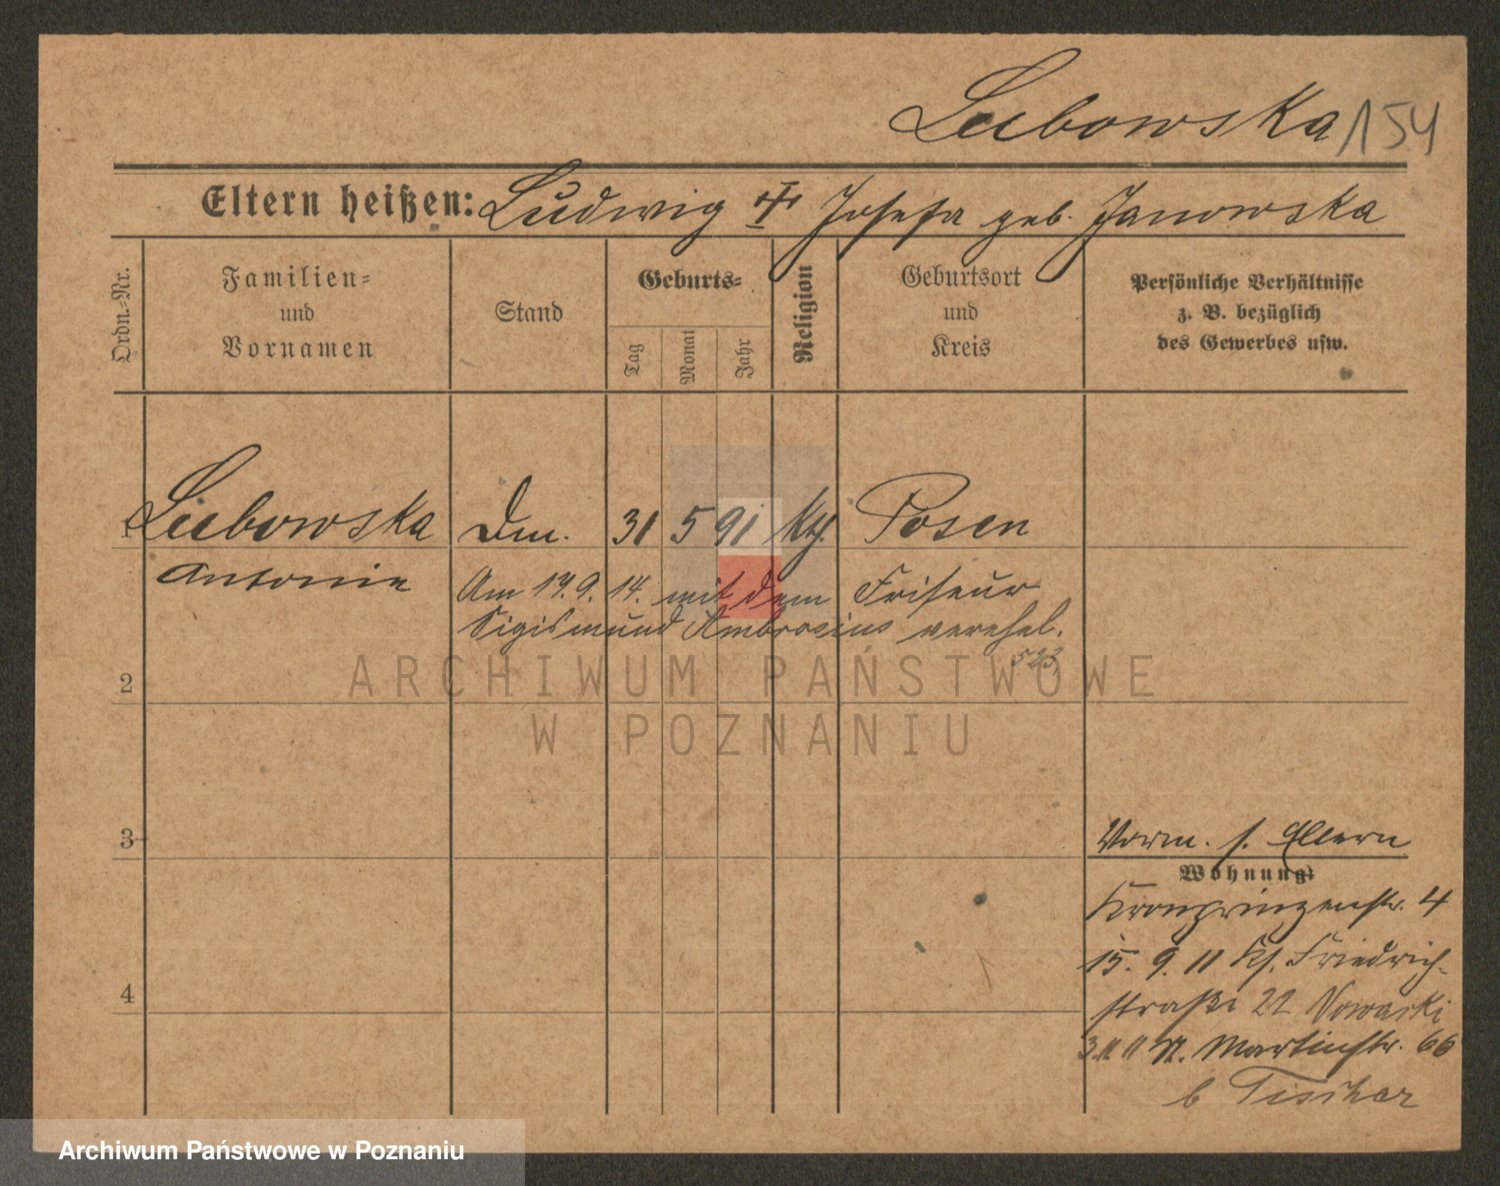 Lubowska 154
Eltern heißen: Ludwig ✝ Josefa geb. Janowska
Ordn.=Nr.
Familien=
und
Vornamen
Stand
Geburts=
Tag
Monat
Jahr
Religion
Geburtsort
und
Kreis
Persönliche Verhältnisse
z. B. bezüglich
des Gewerbes usw.
1 Lubowska Dm. 31 5 91 Kth. Posen
Antonie
Am 19.9.14. mit dem Friseur
Sigismund Ambrosius verehel.
523
2
ARCHIWUM PAŃSTWOWE
W POZNANIU
3
Vorm. s. Eltern
Wohnung
Kronprinzenstr. 4
15. 9. 11 Friedrich-
straße 22 Nowacki
3 11 11 St. Martinstr. 66
b Tischer
4
Archiwum Państwowe w Poznaniu